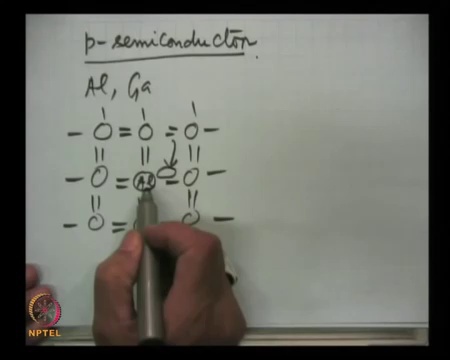 p-semiconductor
Al, Ga
Al
NPTEL